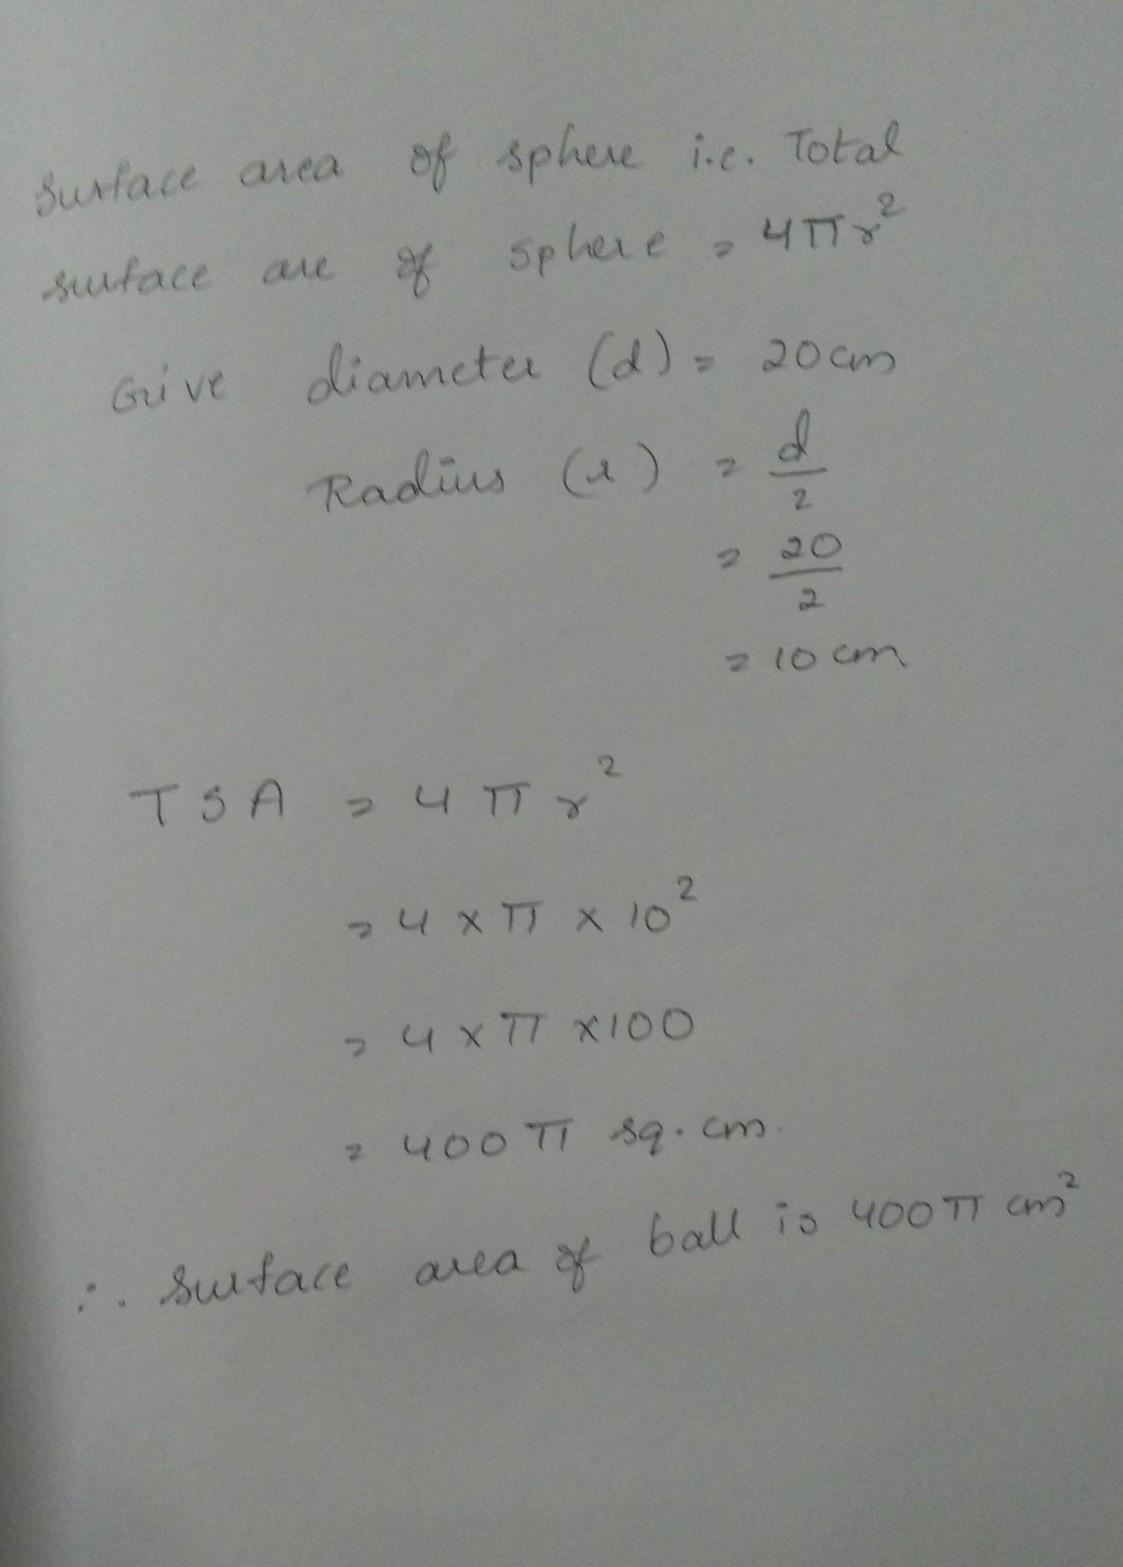 Surface area of sphere i.e. Total
surface are of sphere = 4πr²
Give diameter (d) = 20cm
Radius (r) = d/2
= 20/2
= 10 cm
TSA = 4πr²
= 4 × π × 10²
= 4 × π × 100
= 400 π sq. cm.
∴ Surface area of ball is 400π cm²